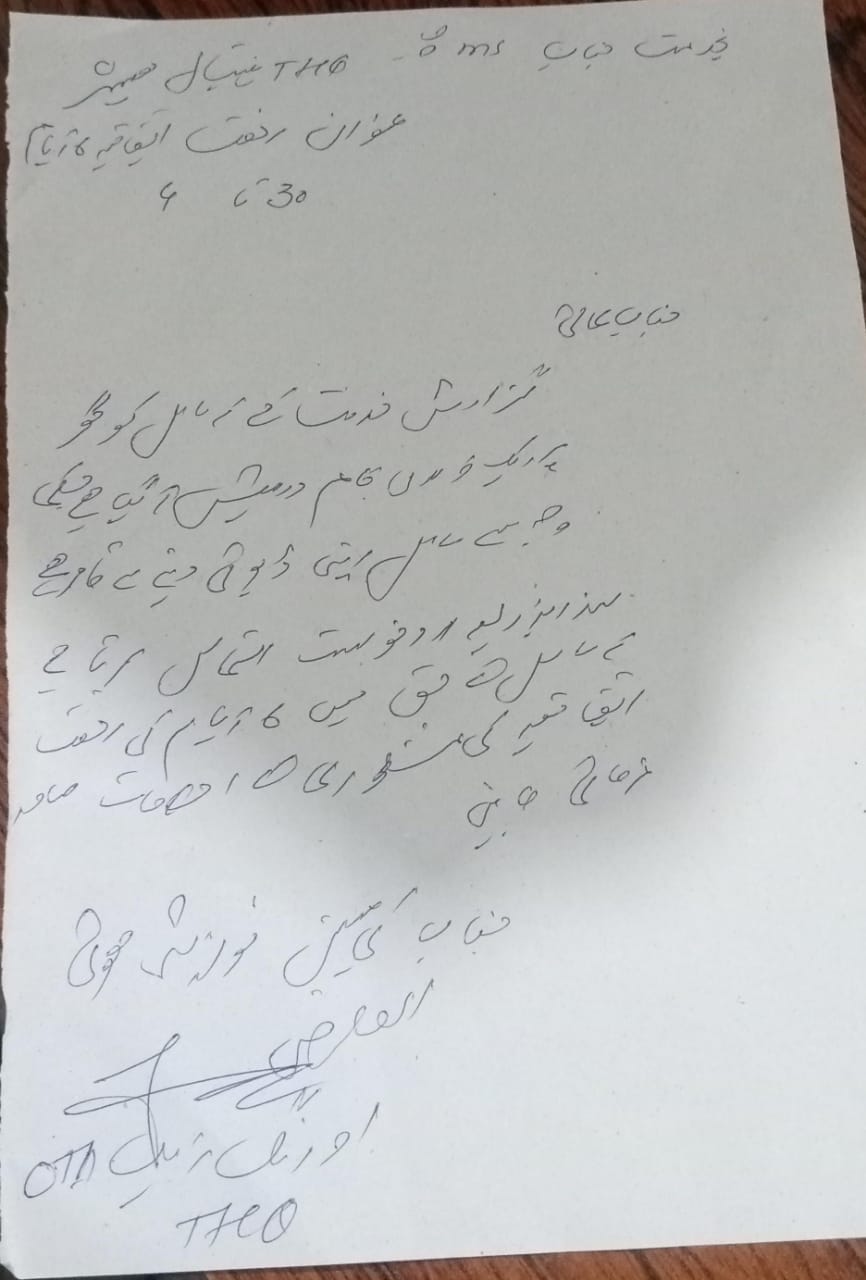 بخدمت جناب MS THQ ہسپتال
عنوان رخصت اتفاقیہ ایام
30 تا 4
جناب عالی
گزارش خدمت ہے کہ سائل کو گھر
پر ایک ضروری کام درپیش آ گیا ہے جسکی
وجہ سے سائل اپنی ڈیوٹی دینے سے قاصر ہے
لہذا بذریعہ درخواست التماس کرتا ہے
کہ سائل کے حق میں ایام کی رخصت
اتفاقیہ کی منظوری کے احکامات صادر
فرمائے جائیں
جناب کی عین نوازش ہوگی
العارض
اورنگ زیب OTA
THQ